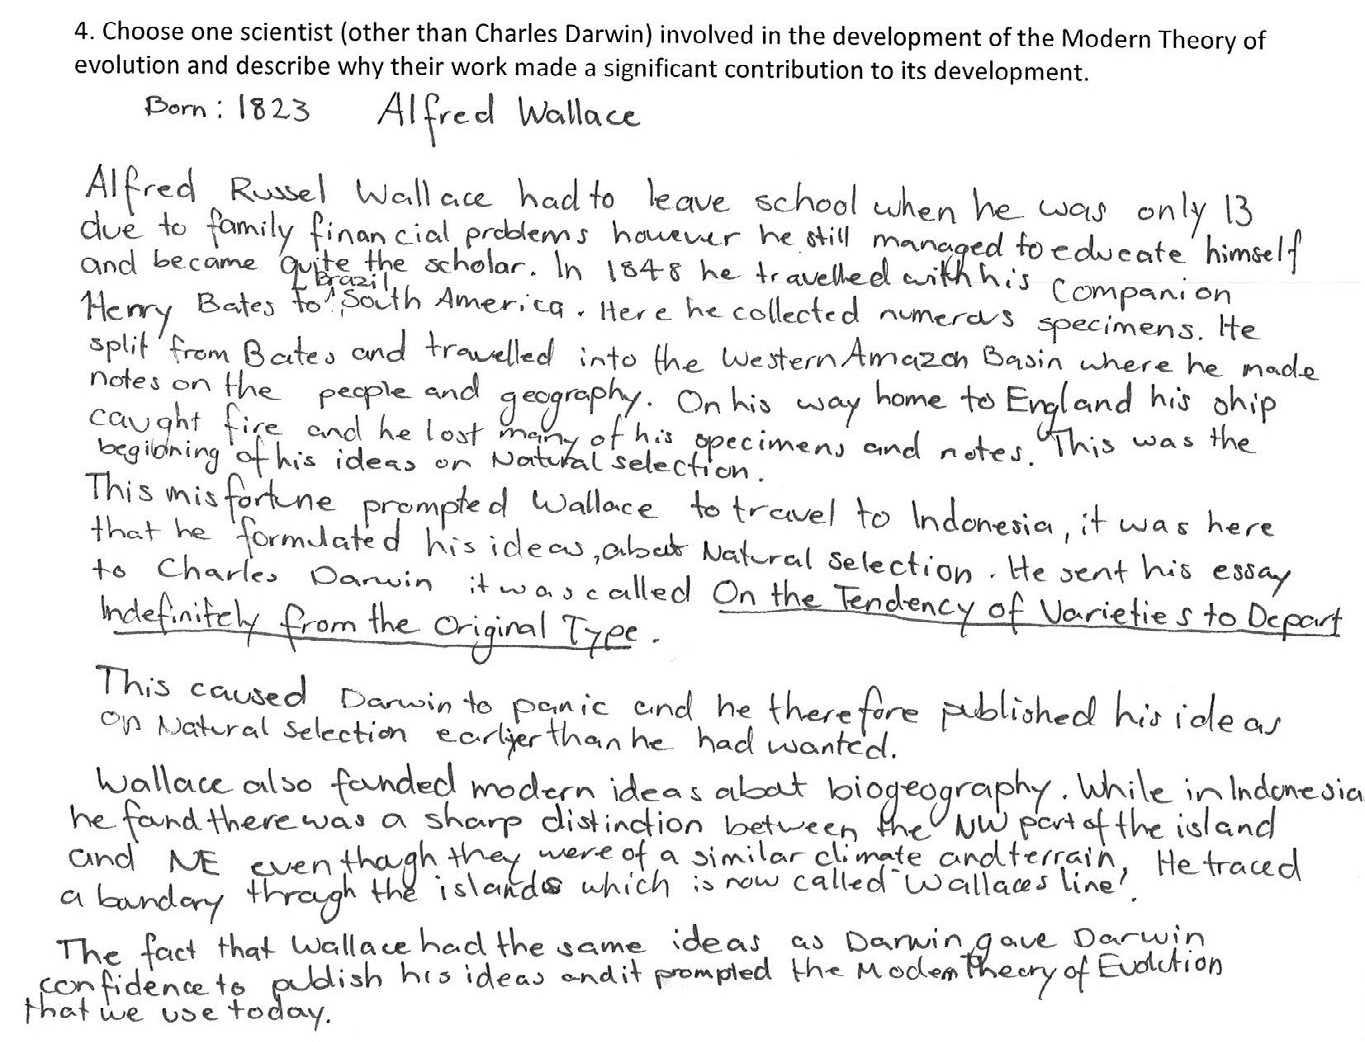 4. Choose one scientist (other than Charles Darwin) involved in the development of the Modern Theory of
evolution and describe why their work made a significant contribution to its development.
Born : 1823 Alfred Wallace
Alfred Russel Wallace had to leave school when he was only 13
due to family financial problems however he still managed to educate himself
and became quite the scholar. In 1848 he travelled with his Companion
Henry Bates to Brazil South America. Here he collected numerous specimens. He
split from Bates and travelled into the Western Amazon Basin where he made
notes on the people and geography. On his way home to England his ship
caught fire and he lost many of his specimens and notes. This was the
beginning of his ideas on Natural selection.
This misfortune prompted Wallace to travel to Indonesia, it was here
that he formulated his ideas, about Natural Selection. He sent his essay
to Charles Darwin it was called On the Tendency of Varieties to Depart
Indefinitely from the Original Type.
This caused Darwin to panic and he therefore published his ideas
on Natural Selection earlier than he had wanted.
Wallace also founded modern ideas about biogeography. While in Indonesia
he found there was a sharp distinction between the NW part of the island
and NE even though they were of a similar climate and terrain. He traced
a boundary through the islands which is now called "Wallaces line".
The fact that Wallace had the same ideas as Darwin gave Darwin
confidence to publish his ideas and it prompted the Modern Theory of Evolution
that we use today.